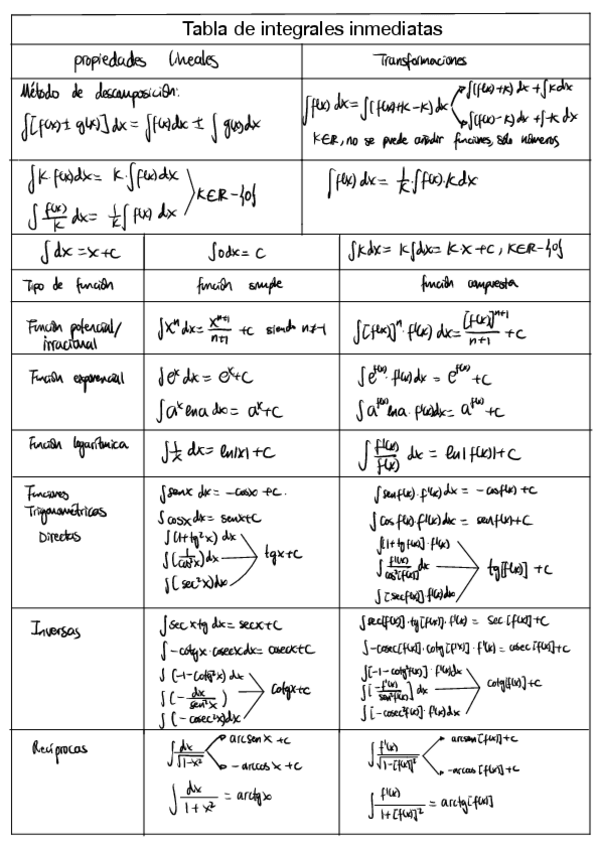 Tabla de integrales inmediatas
propiedades lineales
Transformaciones
Método de descomposición:
∫[f(x) ± g(x)] dx = ∫f(x)dx ± ∫g(x)dx
∫f(x) dx = ∫(f(x)+K-K) dx
∫(f(x)+K) dx + ∫K dx
∫(f(x)-K) dx + ∫-K dx
K∈R, no se puede añadir funciones, sólo números
∫K·f(x)dx = K·∫f(x)dx
∫ f(x)/K dx = 1/K ∫f(x) dx
K∈R-{0}
∫f(x) dx = 1/K · ∫f(x)·K dx
∫dx = x+C
∫0dx = C
∫Kdx = K∫dx = K·x+C, K∈R-{0}
Tipo de función
función simple
función compuesta
Función potencial/
irracional
∫xⁿ dx = xⁿ⁺¹/n+1 +C siendo n≠-1
∫[f(x)]ⁿ·f'(x) dx = [f(x)]ⁿ⁺¹/n+1 + C
Función exponencial
∫eˣ dx = eˣ+C
∫aˣ lna dx = aˣ+C
∫e^f(x)·f'(x)dx = e^f(x) +C
∫a^f(x) lna·f'(x)dx = a^f(x) +C
Función logarítmica
∫1/x dx = ln|x|+C
∫ f'(x)/f(x) dx = ln|f(x)|+C
Funciones
Trigonométricas
Directas
∫senx dx = -cosx +C.
∫cosx dx = senx+C
∫(1+tg²x) dx
∫(1/cos²x)dx
∫(sec²x)dx
tgx+C
∫senf(x)·f'(x)dx = -cosf(x) +C
∫cosf(x)·f'(x)dx = senf(x)+C
∫[1+tg f(x)]·f'(x)
∫ f'(x)/cos²[f(x)] dx
∫[secf(x)]·f'(x)dx
tg[f(x)] +C
Inversas
∫secx tg dx = secx+C
∫-cotgx·cosecx dx = cosecx+C
∫(-1-cotg²x) dx
∫(-dx/sen²x)
∫(-cosec²x)dx
cotgx+C
∫sec[f(x)]·tg[f(x)]·f'(x) = sec[f(x)]+C
∫-cosec[f(x)]·cotg[f(x)]·f'(x) = cosec[f(x)]+C
∫[-1-cotg²f(x)]·f'(x)dx
∫[-f'(x)/sen²f(x)] dx
∫[-cosec²f(x)]·f'(x)dx
cotg[f(x)]+C
Recíprocas
∫dx/√1-x²
arcsenx +C
-arccosx +C
∫dx/1+x² = arctgx
∫f'(x)/√1-[f(x)]²
arcsen[f(x)]+C
-arccos[f(x)]+C
∫f'(x)/1+[f(x)]² = arctg[f(x)]